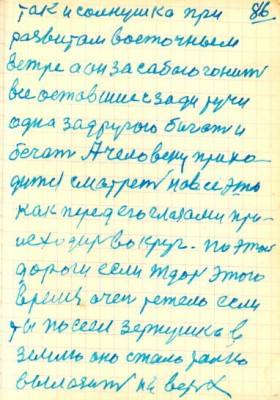 86
так и солнушка при
развитам восточным
ветре а он за сабою гонит
все оставшие сзади тучи
одна за другою бигат и
бегат А человеку прихо-
дится смотрет на все это
как перед его глазами при-
исходит вокруг. по этой
дороги если ждат этого
время очен
если
ты посеел зернушка в
землю оно стало
вылазит на верх